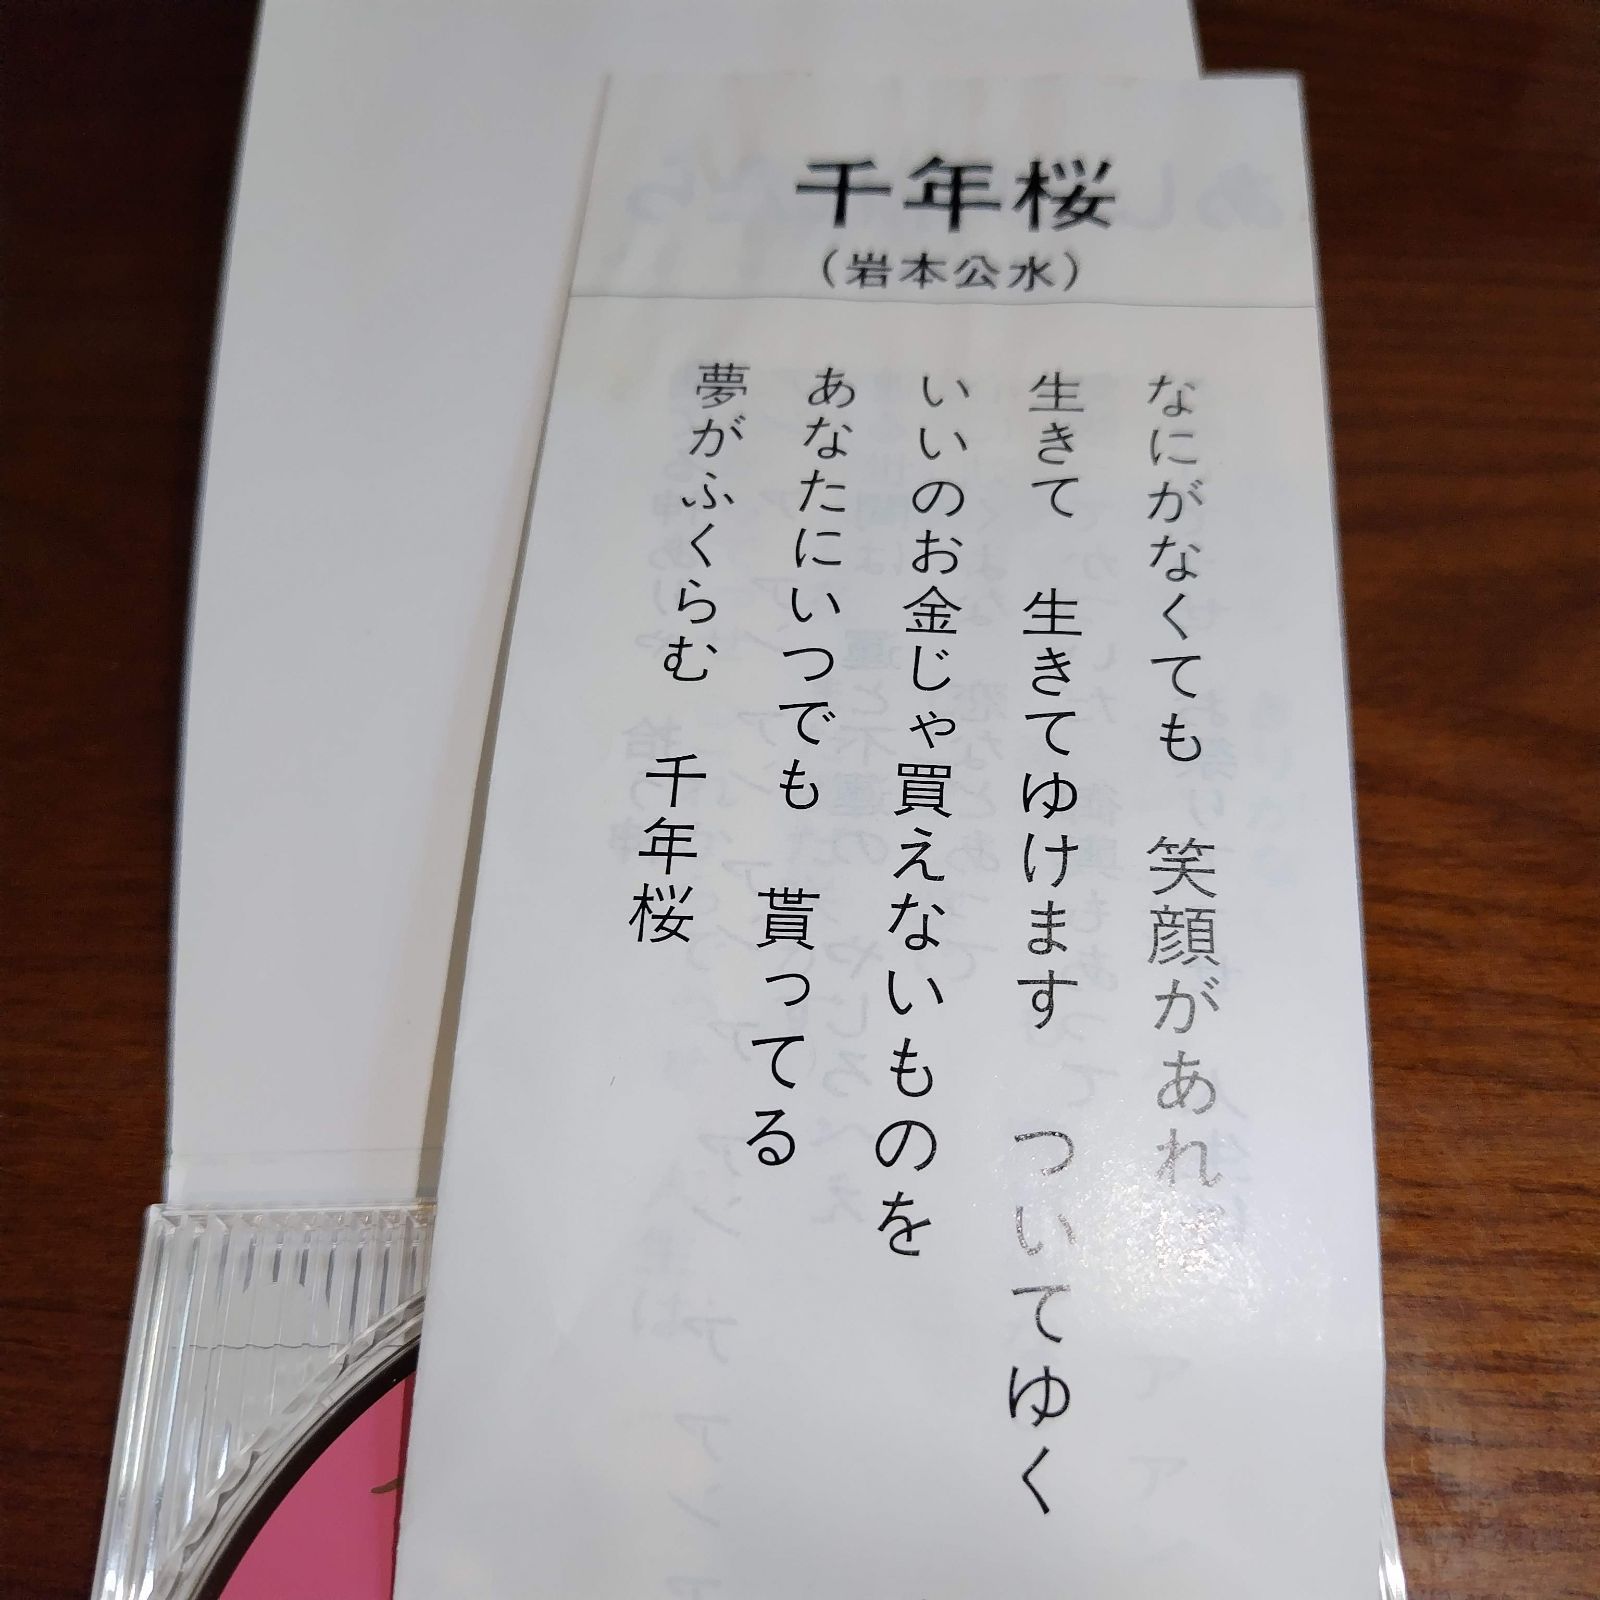 千年桜
(岩本公水)
なにがなくても　笑顔があれば
生きて　生きてゆけます　ついてゆく
いいのお金じゃ買えないものを
あなたにいつでも　貰ってる
夢がふくらむ　千年桜